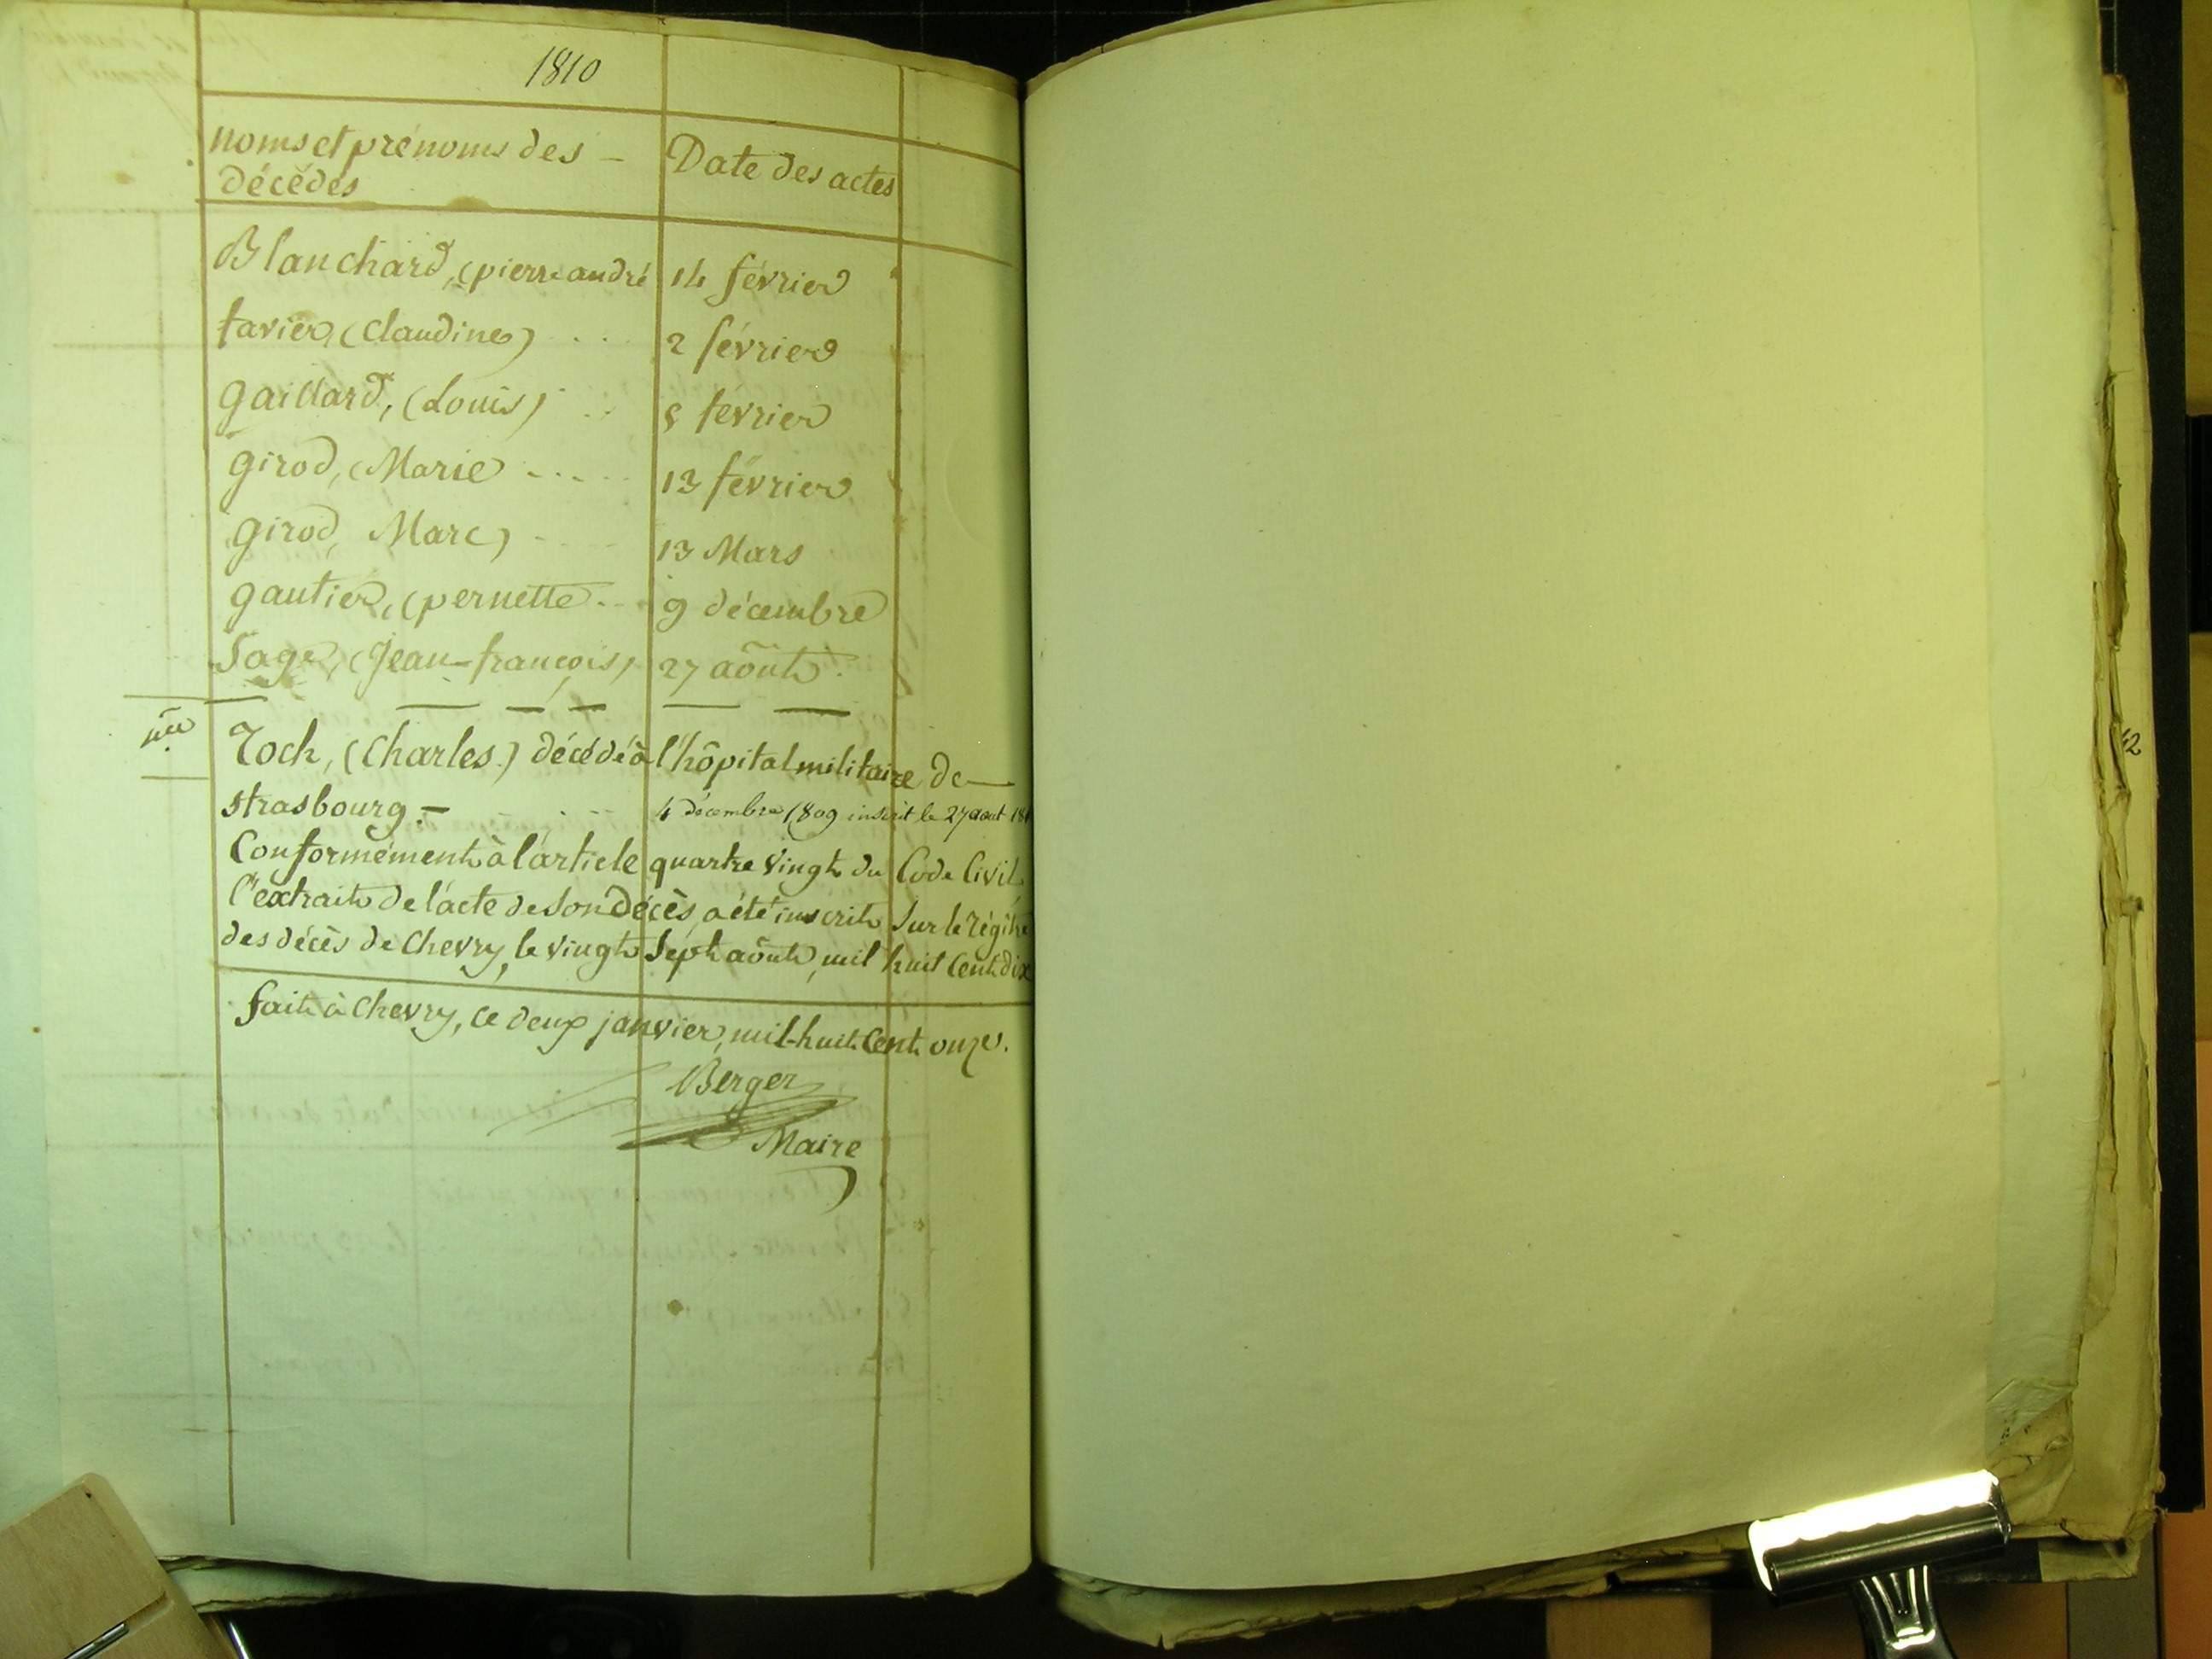 1810
noms et prénoms des -
décédés
Date des actes
Blanchard, (pierre andré
14 février
favier, (Claudine) ...
2 février
gaillard, (Louis) ..
5 février
girod, (Marie ....
13 février
girod, Marc) ....
13 Mars
gautier, (pernette ..
9 décembre
Sage, (Jean-françois,
27 août.
Rock, (Charles.) décédé à l'hôpital militaire de —
strasbourg. —
4 décembre 1809 inscrit le 27 aout 18
Conformément à l'article quartre vingt du Code Civil
l'extrait de l'acte de son décès, a été inscrit, sur le régitre
des décès de Chevry, le vingt sept août, mil huit cent dix
fait à Chevry, ce deux janvier, mil-huit cent onze.
Berger
Maire